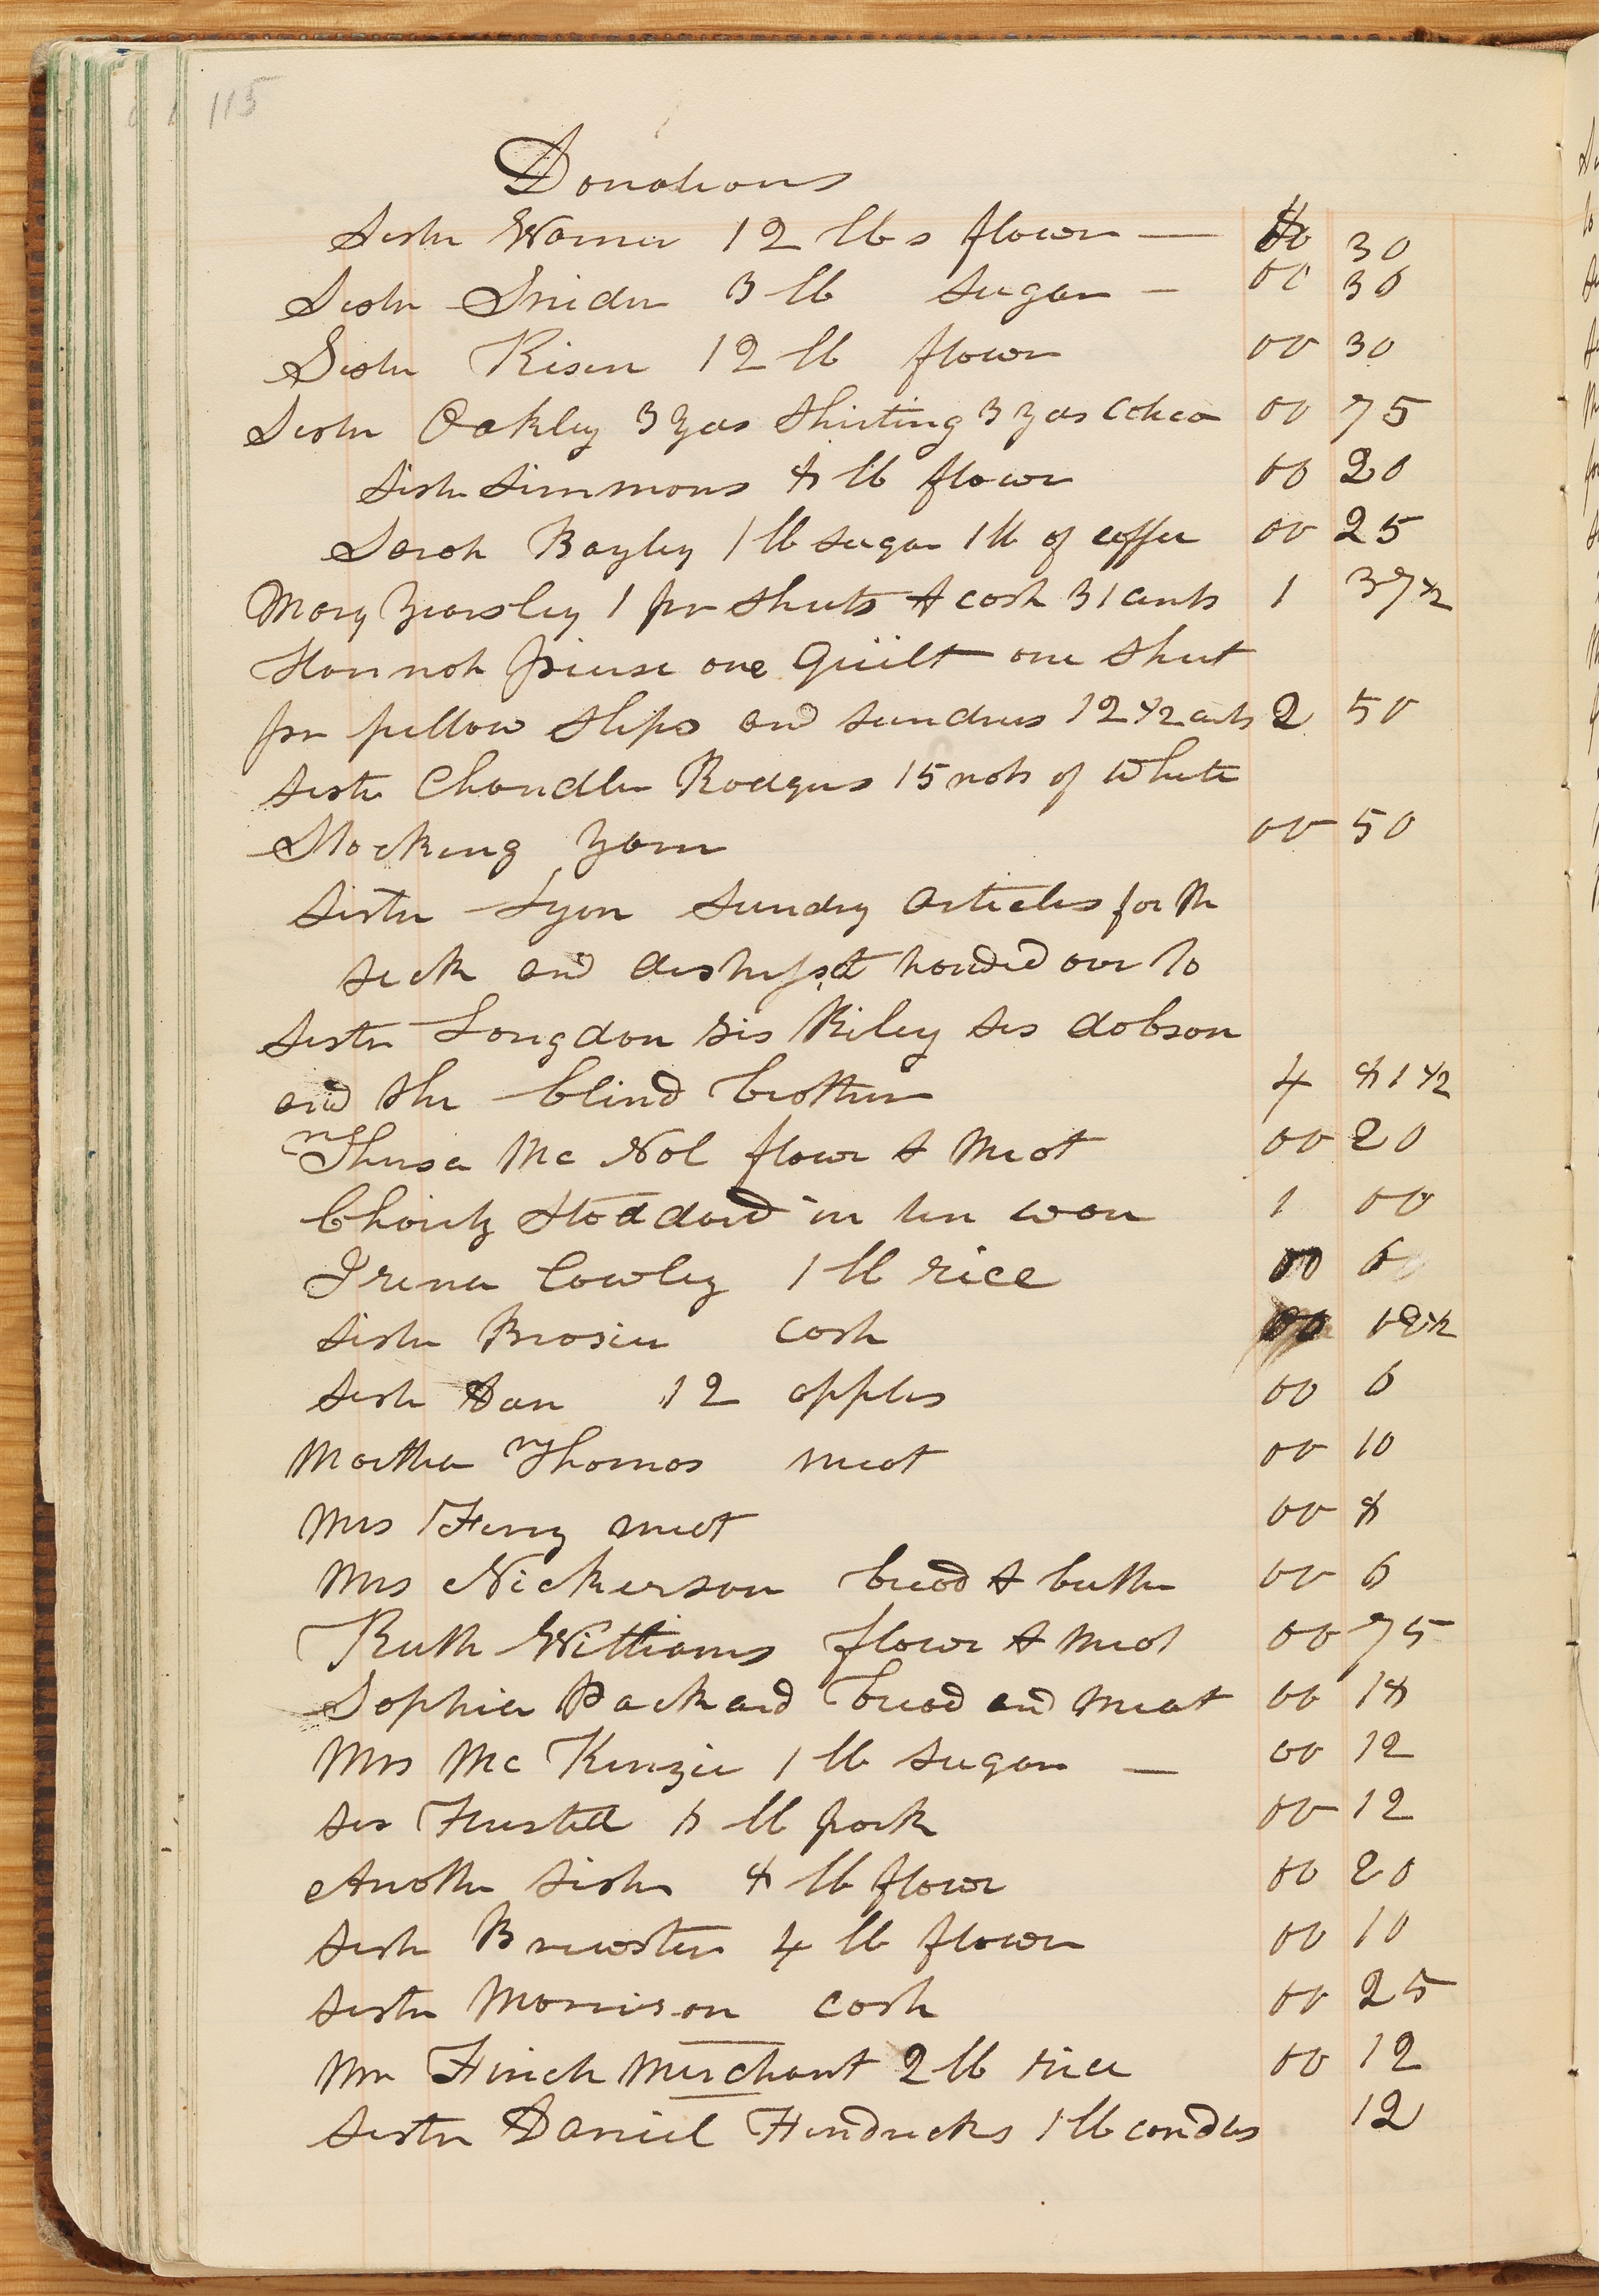 115
Donations
Sister Warner 12 lbs flower — $ 00 30
Sister Snider 3 lb sugar — 00 30
Sister Risen 12 lb flower 00 30
Sister Oakley 3 yds Shirting 3 yds Calico 00 75
Sister Simmons 8 lb flower 00 20
Sarah Bayley 1 lb sugar 1 lb of coffee 00 25
Mary Yearsley 1 pr sheets & cash 31 cents 1 37 1/2
Hannah pierse one Quilt one sheet
pr pillow slips and sundries 12 1/2 cents 2 50
Sister Chandler Rodgers 15 nots of White
Stocking Yarn 00 50
Sister Lyon Sundry articles for the
sick and distressd handed over to
Sister Longdon sis Riley sis dobson
and the blind brother 4 81 1/2
Thirsa Mc Nol flour & Meat 00 20
Charity Stoddard in tin ware 1 00
Irena Cowley 1 lb rice 00 6
Sister Brosier cash 00 12 1/2
Sister 12 apples 00 6
Martha Thomas meat 00 10
Mrs Ferry meat 00 8
Mrs Nickerson bread & butter 00 6
Ruth Williams flour & meat 00 75
Sophia Packard bread and Meat 00 18
Mrs Mc Kinzie 1 lb sugar — 00 12
Sis lb pork 00 12
Another sister 8 lb flour 00 20
Sister Brewster 4 lb flower 00 10
Sister Morrison cash 00 25
Mr Finch Merchant 2 lb rice 00 12
Sister Daniel Hendricks 1 lb candles 12